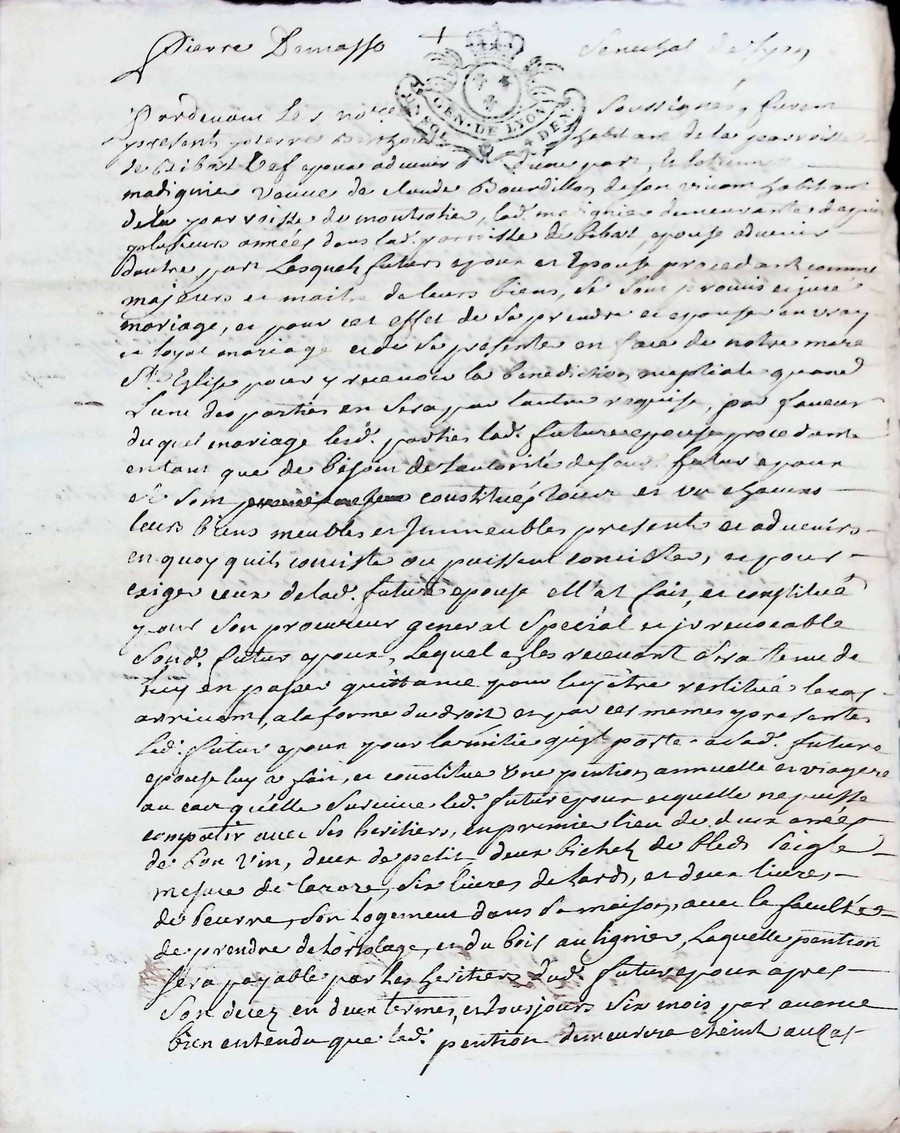 Pierre Demasso + Senechal de Lyon
GEN. DE LYON
Pardevant Les no.res soussignés, furent
present pierre habitant de la parroisse
de Ribat lef epoux advenir d'une part, &
matignier veuve de claude Bourdillon de son vivant habitant
de la parroisse de montrotier, lad. matignier demeurante depuis
plusieurs années dans lad. parroisse de Ribat, epouse advenir
d'autre part Lesquels futurs epoux et Epouse procedant comme
majeurs et maitre de leurs biens, se sont promis et juré
mariage, et pour cet effet de se prendre et epouse en vray
et loyal mariage et de se presenter en face de notre mere
Ste Eglise pour y recevoir la benediction nuptiale quand
L'une des parties en sera par l'autre requise, par faveur
duquel mariage lesd. parties lad. future epouse procedante
en tant que de besoin de l'autorité de sond. futur epoux
se sont constitués tous et un chacuns
leurs biens meubles et Immeubles present et advenirs
en quoy quils consiste ou puissent consister, et pour
exiger ceux de lad. future epouse elle at fait, et constitué
pour son procureur general special et irrevocable
sond. futur epoux, Lequel en les recevant sera tenu de
luy en passer quittance pour luy être restitué le cas
arrivant, a la forme du droit et par ces memes presentes
led. futur epoux pour l'amitié qu'il porte a lad. future
epouse luy a fait, et constitue Une pention annuelle et viagere
au cas qu'elle survive led. futur epoux et quelle ne puisse
compatir avec ses heritiers, en premier lieu de deux années
de bon vin, deux de petit deux bichets de bled seigle
mesure de tarare, six livres de lard, et deux livres
de beurre, son logement dans sa maison, avec la faculté
de prendre de l'ortolage, et du bois au lignier, Laquelle pention
sera payable par les heritiers dud. futur epoux apres
son decez en deux termes, et tousjours six mois par avance
bien entendu que lad. pention demeurera eteint au cas